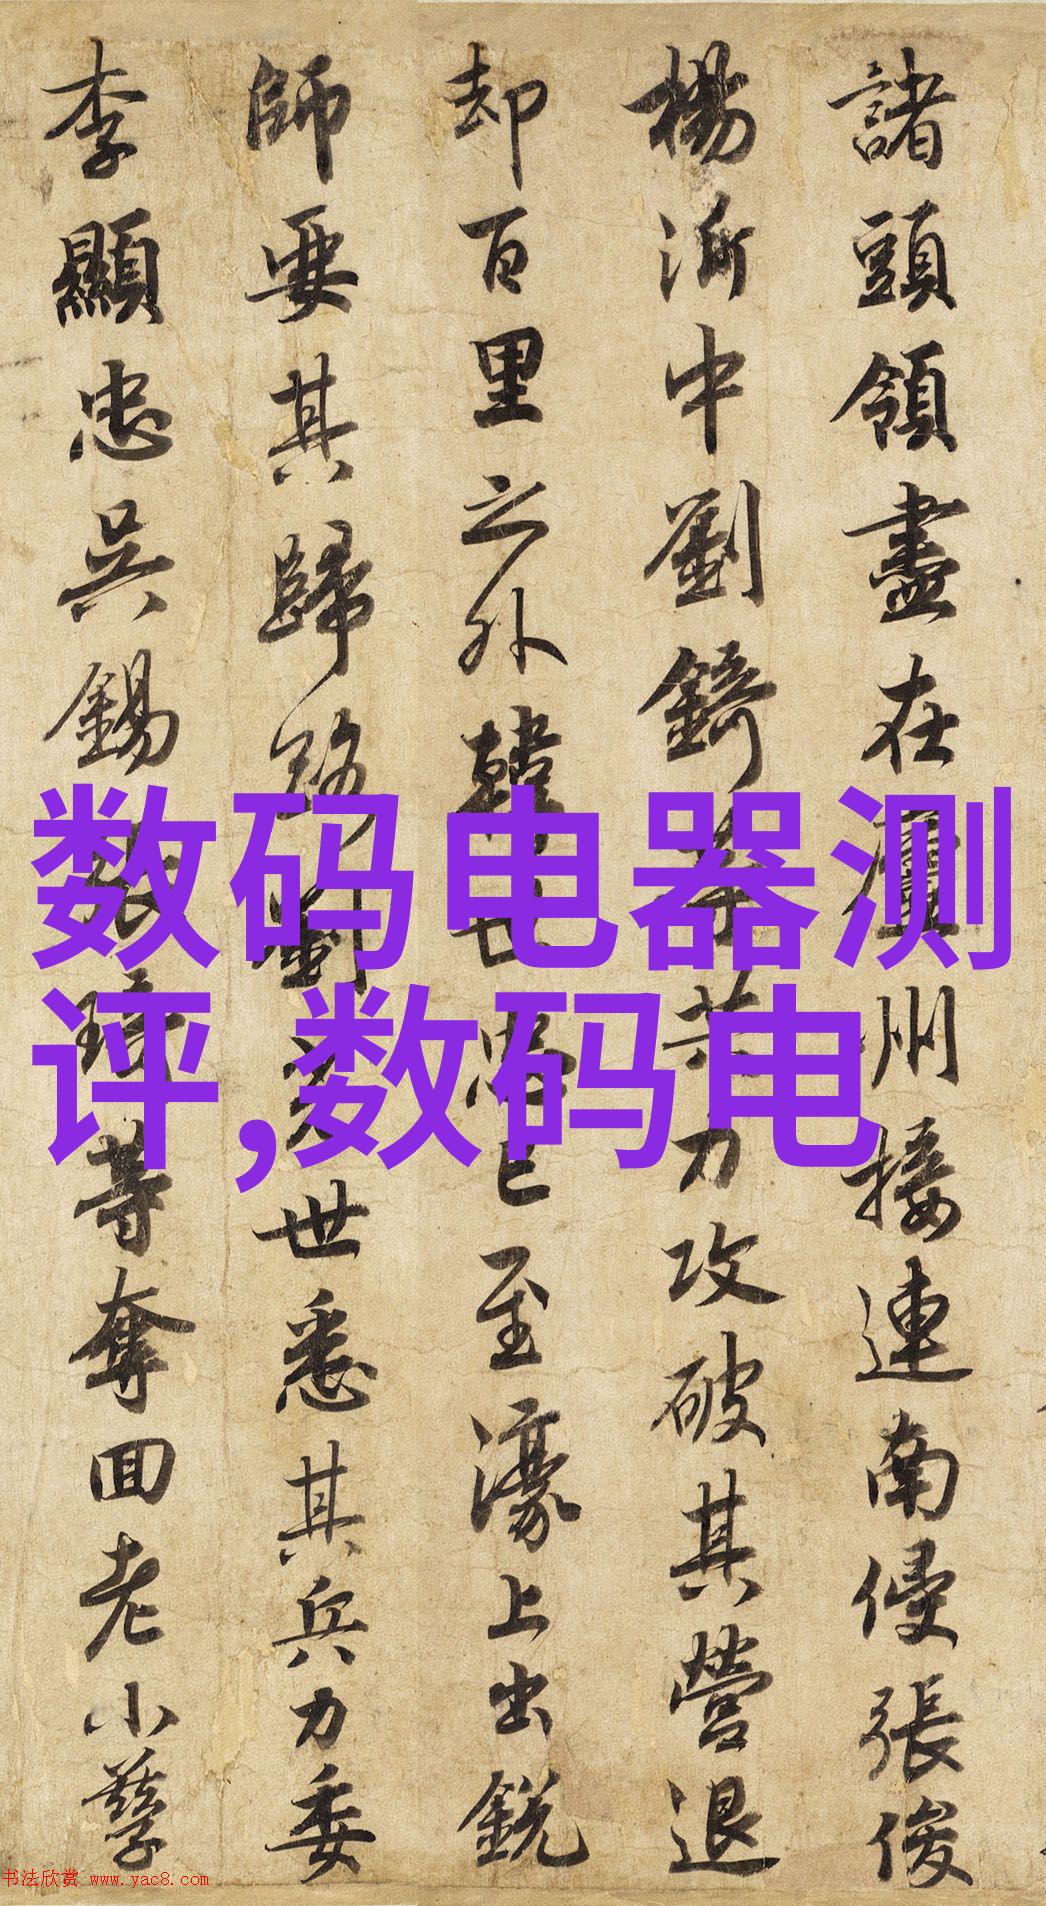 諸頭領盡在廬州接連南侵張俊
楊沂中劉錡等共力攻破其營退
却百里之外韓世忠已至濠上出銳
師要其歸路劉光世悉其兵力委
李顯忠吳錫張琦等奪回老小孳
数码电器测
评,数码电
书法欣赏 www.yac8.com